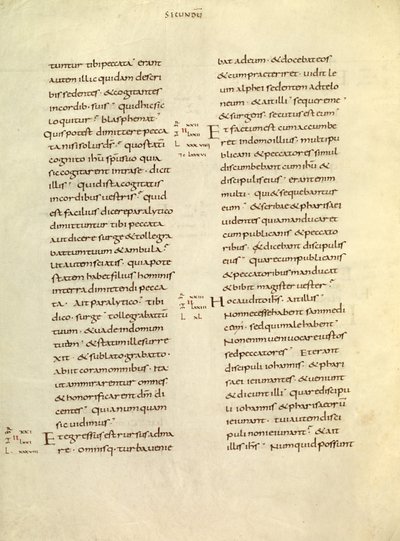 SECUNDŪ
tuntur tibi peccata erant
autem illic quidam de scri
bis sedentes · & cogitantes
in cordib; suis · quid hic sic
loquitur blasphemat
Quis potest dimittere pecca
ta nisi solus d̄s · quo statī
cognito ihs̄ spū suo quia
sic cogitarent intra se · dicit
illis · quid ista cogitatis
in cordibus uestris · quid
est facilius dicere paralytico
dimittuntur tibi peccata
aut dicere surge & tolle gra
battum tuum & ambula
Ut autem sciatis · quia pote
statem habet filius hominis
in terra dimittendi pecca
ta · Ait paralytico · tibi
dico · surge tolle grabattū
tuum · & uade in domum
tuam · & statim ille surre
xit · & sublato grabatto ·
abiit coram omnibus · Ita
ut ammirarentur omnes
& honorificarent dm̄ di
centes · quia numquam
sic uidimus
Et egressus est rursus ad ma
re · omnisq; turba uenie
bat ad eum · & docebat eos
& cum praeteriret · uidit le
uin alphei sedentem ad telo
neum · & ait illi sequere me ·
& surgens · secutus est eum
Et factum est cum accumbe
ret in domo illius · multi pu
blicani & peccatores simul
discumbebant cum ihū &
discipulis eius · erant enim
multi · qui & sequebantur
eum · & scribae & pharisaei
uidentes quia manducaret
cum publicanis & peccato
ribus · & dicebant discipulis
eius · quare cum publicanis
& peccatoribus manducat
& bibit magister uester
Hoc audito ihs̄ · ait illis
Non necesse habent sani medi
cum · sed qui male habent
Non enim ueni uocare iustos
sed peccatores · Et erant
discipuli iohannis · & phari
saei ieiunantes · & ueniunt
& dicunt illi · quare discipu
li iohannis & pharisaeorū
ieiunant · tui autem disci
puli non ieiunant · & ait
illis ihs̄ · Numquid possunt